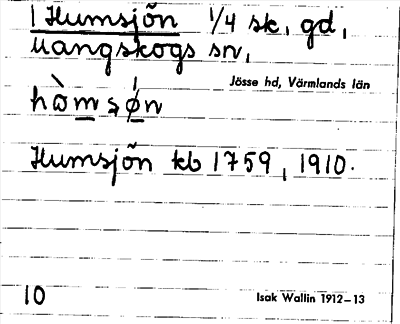 1 Humsjön 1/4 sk, gd,
Mangskogs sn,
Jösse hd, Värmlands län
hòmsø̀n
Humsjön kb 1759, 1910.
10
Isak Wallin 1912–13